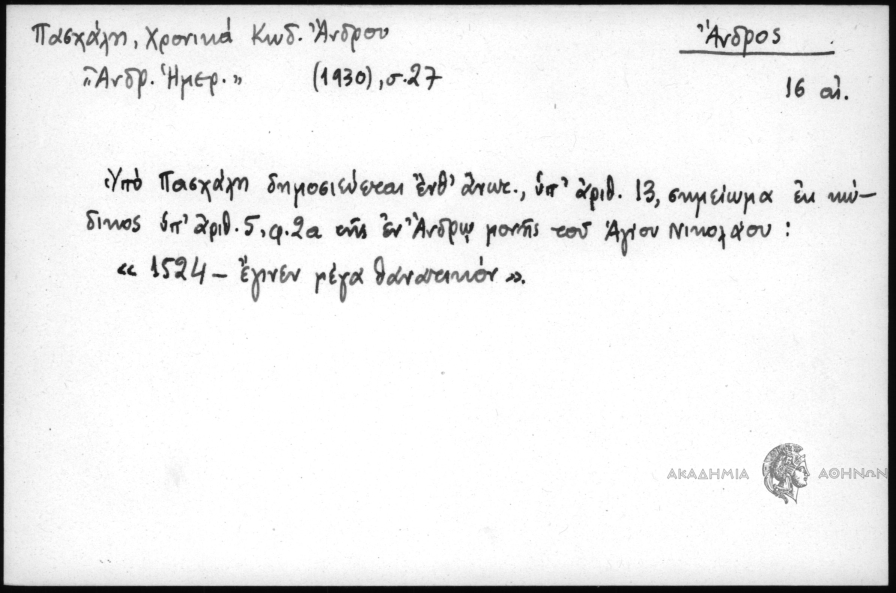 Πασχάλη, Χρονικά Κωδ. Ἄνδρου
Ἄνδρος
"Ἀνδρ. Ἡμερ." (1930), σ. 27
16 αἰ.
Ὑπὸ Πασχάλη δημοσιεύεται ἔνθ' ἀνωτ., ὑπ' ἀριθ. 13, σημείωμα ἐκ κώ-
δικος ὑπ' ἀριθ. 5, φ. 2α τῆς ἐν Ἄνδρῳ μονῆς τοῦ Ἁγίου Νικολάου :
« 1524 – ἔγινεν μέγα θανατικόν ».
ΑΚΑΔΗΜΙΑ ΑΘΗΝΩΝ